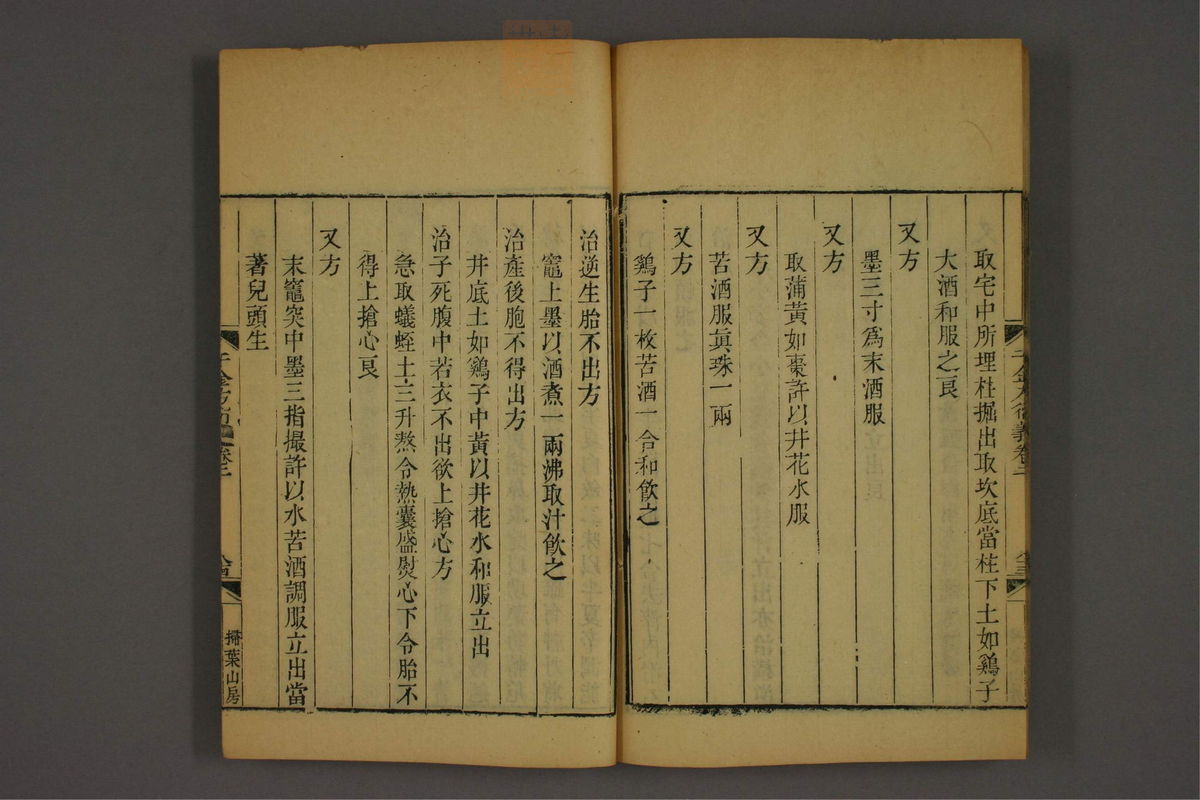 取宅中所埋杜掘出取坎底當柱下土如鷄子
大酒和服之良
又方
墨三寸爲末酒服
又方
取蒲黃如棗許以井花水服
又方
苦酒服眞珠一兩
又方
鷄子一枚苦酒一合和飮之
治逆生胎不出方
竈上墨以酒煮一兩沸取汁飮之
治產後胞不得出方
井底土如鷄子中黃以井花水和服立出
治子死腹中若衣不出欲上搶心方
急取蟻蛭土三升熬令熱囊盛熨心下令胎不
得上搶心良
又方
末竈突中墨三指撮許以水苦酒調服立出當
著兒頭生
千金方衍義卷二
掃葉山房